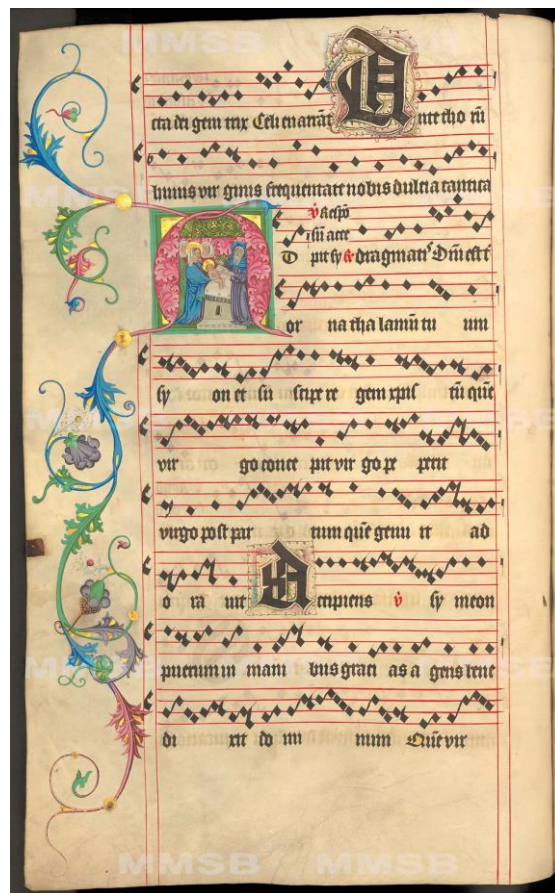 MMSB MMSB
cta dei geni trix Celi enarrāt A nte tho rū
huius vir ginis frequentate nobis dulcia cantica
isū acce
pit sy
A or na tha lamū tu um
sy on et su scipe re gem xp̄s tū quē
vir go conce pit vir go pe perit
virgo post par tum quē genu it ad
o ra uit A ccipiens v̄ sy meon
puerum in mani bus grati as a gens bene
di xit do mi num Quē vir
MMSB MMSB